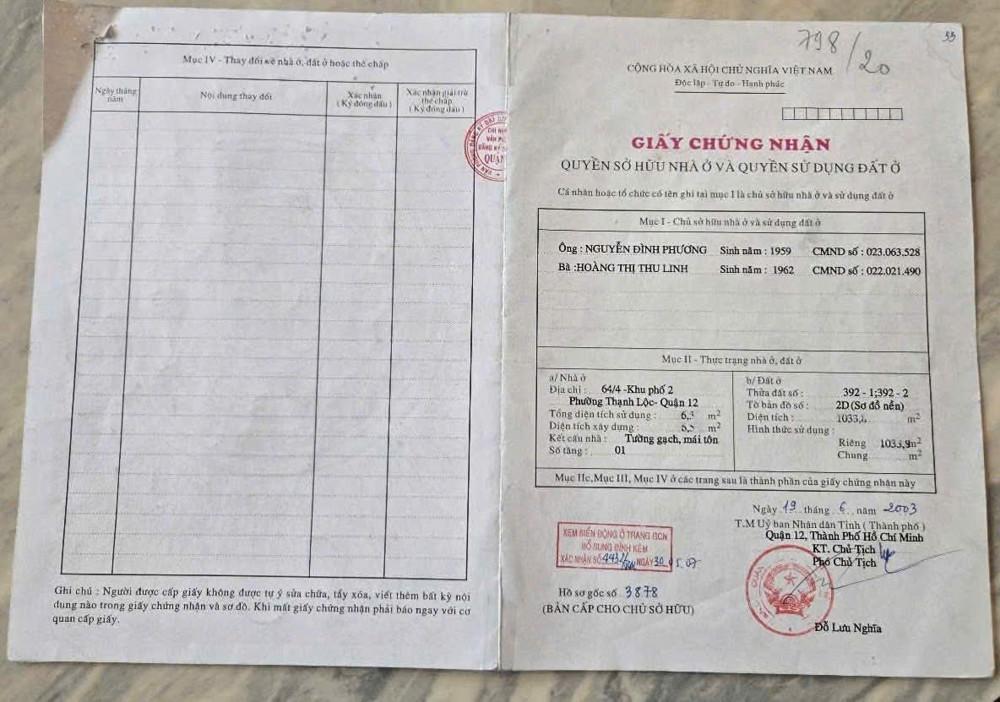 Mục IV - Thay đổi về nhà ở, đất ở hoặc thế chấp
Ngày tháng năm
Nội dung thay đổi
Xác nhận
( Ký đóng dấu )
Xác nhận giải trừ
thế chấp
( Ký đóng dấu )
Ghi chú : Người được cấp giấy không được tự ý sửa chữa, tẩy xóa, viết thêm bất kỳ nội
dung nào trong giấy chứng nhận và sơ đồ. Khi mất giấy chứng nhận phải báo ngay với cơ
quan cấp giấy.
798/20
CỘNG HÒA XÃ HỘI CHỦ NGHĨA VIỆT NAM
Độc lập - Tự do - Hạnh phúc
GIẤY CHỨNG NHẬN
QUYỀN SỞ HỮU NHÀ Ở VÀ QUYỀN SỬ DỤNG ĐẤT Ở
Cá nhân hoặc tổ chức có tên ghi tại mục I là chủ sở hữu nhà ở và sử dụng đất ở
Mục I - Chủ sở hữu nhà ở và sử dụng đất ở
Ông : NGUYỄN ĐÌNH PHƯƠNG Sinh năm : 1959 CMND số : 023.063.528
Bà :HOÀNG THỊ THU LINH Sinh năm : 1962 CMND số : 022.021.490
Mục II - Thực trạng nhà ở, đất ở
a/ Nhà ở
Địa chỉ : 64/4 -Khu phố 2
Phường Thạnh Lộc- Quận 12
Tổng diện tích sử dụng : m²
Diện tích xây dựng : m²
Kết cấu nhà : Tường gạch, mái tôn
Số tầng : 01
b/ Đất ở
Thửa đất số : 392 - 1;392 - 2
Tờ bản đồ số : 2D(Sơ đồ nền)
Diện tích : m²
Hình thức sử dụng :
Riêng 1033,9m²
Chung m²
Mục IIc,Mục III, Mục IV ở các trang sau là thành phần của giấy chứng nhận này
Ngày 19 tháng 6 năm 2003
T.M Uỷ ban Nhân dân Tỉnh ( Thành phố )
Quận 12, Thành Phố Hồ Chí Minh
KT. Chủ Tịch
Phó Chủ Tịch
XEM BIẾN ĐỘNG Ở TRANG GCN
BỔ SUNG ĐÍNH KÈM
XÁC NHẬN SỐ NGÀY 30
Hồ sơ gốc số 3878
(BẢN CẤP CHO CHỦ SỞ HỮU)
Đỗ Lưu Nghĩa